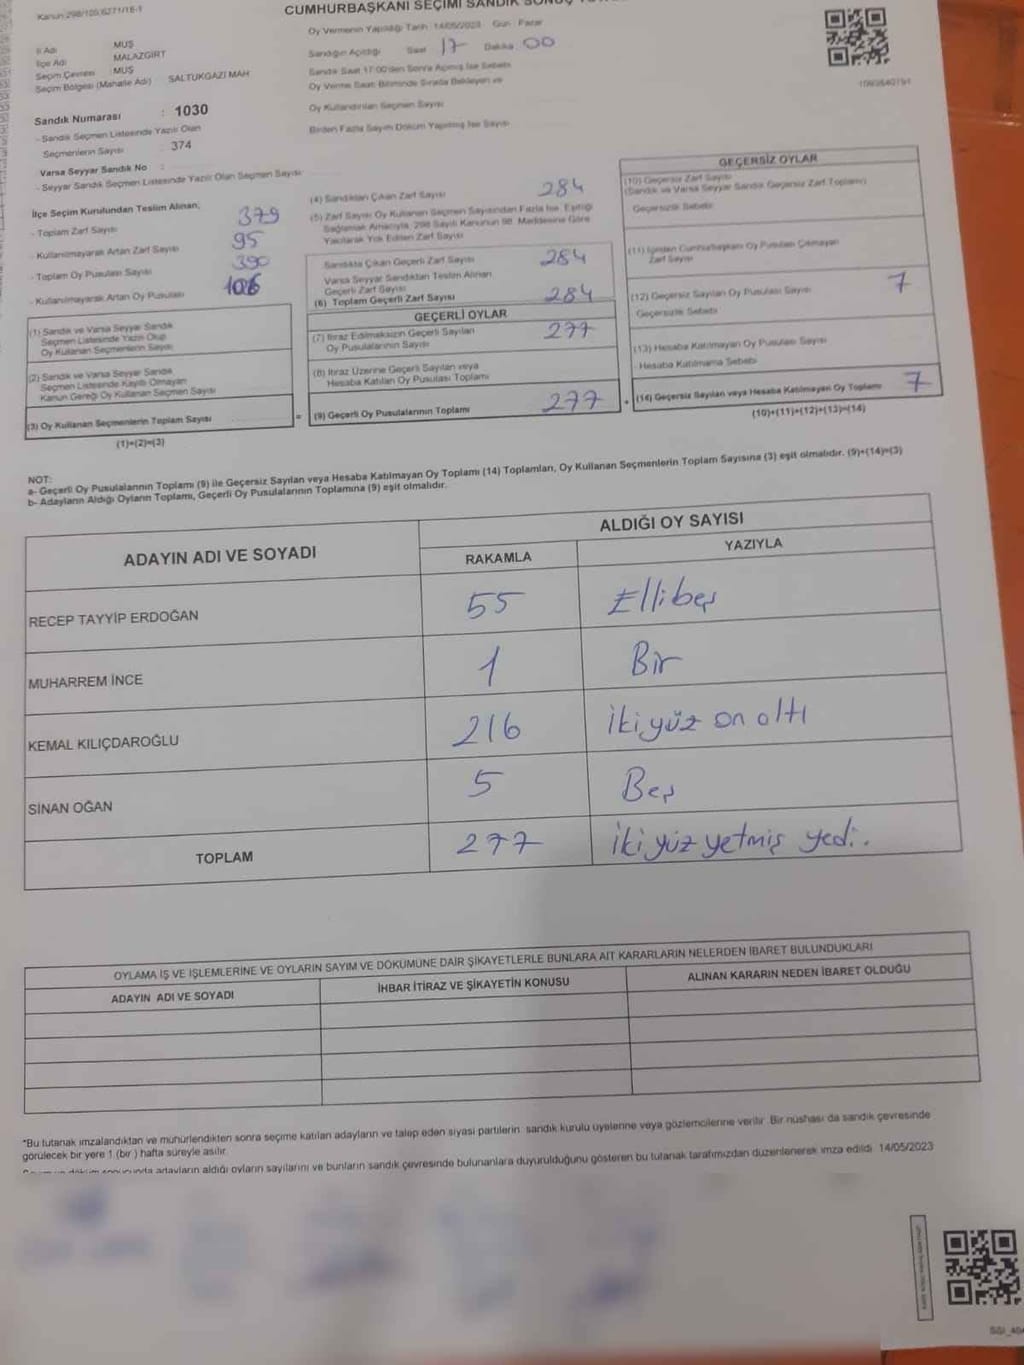 Kanun:298/105;6271/16-1
CUMHURBAŞKANI SEÇİMİ SANDIK
Oy Vermenin Yapıldığı Tarih :14/05/2023 Gün : Pazar
İl Adı MUŞ
İlçe Adı MALAZGİRT
Seçim Çevresi :MUŞ
Seçim Bölgesi (Mahalle Adı) SALTUKGAZİ MAH
Sandığın Açıldığı Saat 17 Dakika : 00
Sandık Saat 17:00'den Sonra Açılmış İse Sebebi
Oy Verme Saati Bitiminde Sırada Bekleyen ve
Oy Kullandırılan Seçmen Sayısı
Birden Fazla Sayım Döküm Yapılmış İse Sayısı
Sandık Numarası : 1030
- Sandık Seçmen Listesinde Yazılı Olan
Seçmenlerin Sayısı 374
Varsa Seyyar Sandık No :
- Seyyar Sandık Seçmen Listesinde Yazılı Olan Seçmen Sayısı
İlçe Seçim Kurulundan Teslim Alınan,
- Toplam Zarf Sayısı 379
- Kullanılmayarak Artan Zarf Sayısı 95
- Toplam Oy Pusulası Sayısı 390
- Kullanılmayarak Artan Oy Pusulası 106
(1) Sandık ve Varsa Seyyar Sandık
Seçmen Listesinde Yazılı Olup
Oy Kullanan Seçmenlerin Sayısı
(2) Sandık ve Varsa Seyyar Sandık
Seçmen Listesinde Kayıtlı Olmayan
Kanun Gereği Oy Kullanan Seçmen Sayısı
(3) Oy Kullanan Seçmenlerin Toplam Sayısı =
(1)+(2)=(3)
(4) Sandıktan Çıkan Zarf Sayısı 284
(5) Zarf Sayısı Oy Kullanan Seçmen Sayısından Fazla İse, Eşitliği
Sağlamak Amacıyla, 298 Sayılı Kanunun 98. Maddesine Göre
Yakılarak Yok Edilen Zarf Sayısı
Sandıkta Çıkan Geçerli Zarf Sayısı 284
Varsa Seyyar Sandıktan Teslim Alınan
Geçerli Zarf Sayısı
(6) Toplam Geçerli Zarf Sayısı 284
GEÇERLİ OYLAR
(7) İtiraz Edilmeksizin Geçerli Sayılan
Oy Pusulalarının Sayısı 277
(8) İtiraz Üzerine Geçerli Sayılan veya
Hesaba Katılan Oy Pusulası Toplamı
(9) Geçerli Oy Pusulalarının Toplamı 277 +
GEÇERSİZ OYLAR
(10) Geçersiz Zarf Sayısı
(Sandık ve Varsa Seyyar Sandık Geçersiz Zarf Toplamı)
Geçersizlik Sebebi
(11) İçinden Cumhurbaşkanı Oy Pusulası Çıkmayan
Zarf Sayısı
(12) Geçersiz Sayılan Oy Pusulası Sayısı 7
Geçersizlik Sebebi
(13) Hesaba Katılmayan Oy Pusulası Sayısı
Hesaba Katılmama Sebebi
(14) Geçersiz Sayılan veya Hesaba Katılmayan Oy Toplamı 7
(10)+(11)+(12)+(13)=(14)
NOT:
a- Geçerli Oy Pusulalarının Toplamı (9) ile Geçersiz Sayılan veya Hesaba Katılmayan Oy Toplamı (14) Toplamları, Oy Kullanan Seçmenlerin Toplam Sayısına (3) eşit olmalıdır. (9)+(14)=(3)
b- Adayların Aldığı Oyların Toplamı, Geçerli Oy Pusulalarının Toplamına (9) eşit olmalıdır.
ADAYIN ADI VE SOYADI
ALDIĞI OY SAYISI
RAKAMLA YAZIYLA
RECEP TAYYİP ERDOĞAN 55 Ellibeş
MUHARREM İNCE 1 Bir
KEMAL KILIÇDAROĞLU 216 İkiyüz on altı
SİNAN OĞAN 5 Beş
TOPLAM 277 İkiyüz yetmiş yedi.
OYLAMA İŞ VE İŞLEMLERİNE VE OYLARIN SAYIM VE DÖKÜMÜNE DAİR ŞİKAYETLERLE BUNLARA AİT KARARLARIN NELERDEN İBARET BULUNDUKLARI
ADAYIN ADI VE SOYADI İHBAR İTİRAZ VE ŞİKAYETİN KONUSU ALINAN KARARIN NEDEN İBARET OLDUĞU
*Bu tutanak imzalandıktan ve mühürlendikten sonra seçime katılan adayların ve talep eden siyasi partilerin sandık kurulu üyelerine veya gözlemcilerine verilir. Bir nüshası da sandık çevresinde
görülecek bir yere 1 (bir ) hafta süreyle asılır.
adayların aldığı oyların sayılarını ve bunların sandık çevresinde bulunanlara duyurulduğunu gösteren bu tutanak tarafımızdan düzenlenerek imza edildi. 14/05/2023